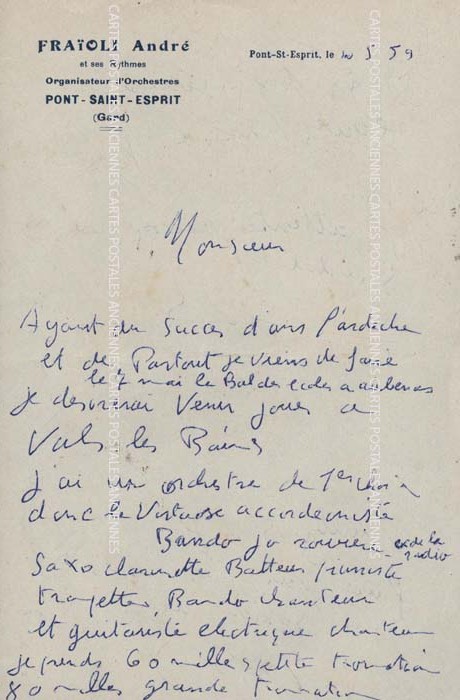 FRAÏOLI André
et ses Rythmes
Organisateur d'Orchestres
PONT-SAINT-ESPRIT
(Gard)
Pont-St-Esprit, le 10 5 59
Monsieur
Ayant du Succes dans l'ardeche
et de Partout je viens de faire
le 7 mai le Bal des ecoles a aubenas
je desirerai Venir jouer a
Vals les Bains
j'ai un orchestre de 1er
donc le Virtuose accordeoniste
Bando jo
ex de la radio
Saxo clarinette Batteur pianiste
trompettes, Bando chanteur
et guitariste electrique chanteur
je prends 60 milles petite formation
80 milles grande formation
CARTES POSTALES ANCIENNES CARTES POSTALES ANCIENNES CARTES POSTALES ANCIENNES
CARTES POSTALES ANCIENNES CARTES POSTALES ANCIENNES CARTES POSTALES ANCIENNES